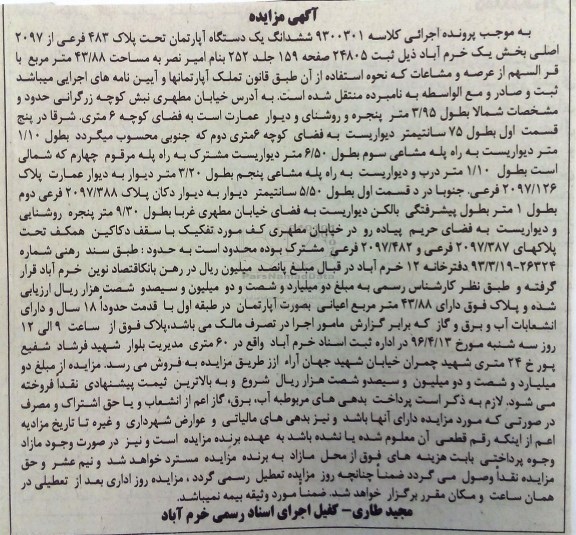 آگهی مزایده
به موجب پرونده اجرائی کلاسه ۹۳۰۰۳۰۱ ششدانگ یک دستگاه آپارتمان تحت پلاک ۴۸۳ فرعی از ۲۰۹۷
اصلی بخش یک خرم آباد ذیل ثبت ۲۴۸۰۵ صفحه ۱۵۹ جلد ۲۵۲ بنام امیر نصر به مساحت ۴۳/۸۸ متر مربع با
قر السهم از عرصه و مشاعات که نحوه استفاده از آن طبق قانون تملک آپارتمانها و آیین نامه های اجرایی میباشد
ثبت و صادر و مع الواسطه به نامبرده منتقل شده است. به آدرس خیابان مطهری نبش کوچه زرگرانی حدود و
مشخصات شمالا بطول ۳/۹۵ متر پنجره و روشنای و دیوار عمارت است به فضای کوچه ۶ متری، شرقا در پنج
قسمت اول بطول ۷۵ سانتیمتر دیواریست به فضای کوچه ۶متری دوم که جنوبی محسوب میگردد بطول ۱/۱۰
متر دیواریست به راه پله مشاعی سوم بطول ۶/۵۰ متر دیواریست مشترک به راه پله مرقوم چهارم که شمالی
است بطول ۱/۱۰ متر درب و دیواریست به راه پله مشاعی پنجم بطول ۳/۲۰ متر دیوار به دیوار عمارت پلاک
۲۰۹۷/۱۲۶ فرعی. جنوبا در د قسمت اول بطول ۵/۵۰ سانتیمتر دیوار به دیوار دکان پلاک ۲۰۹۷/۳۸۸ فرعی دوم
بطول ۱ متر بطول پیشرفتگی بالکن دیواریست به فضای خیابان مطهری غربا بطول ۹/۳۰ متر پنجره روشنایی
و دیواریست به فضای حریم پیاده رو در خیابان مطهری کف مورد تفکیک با سقف دکاکین همکف تحت
پلاکهای ۲۰۹۷/۳۸۷ فرعی و ۲۰۹۷/۴۸۲ فرعی مشترک بوده محدود است به حدود : طبق سند رهنی شماره
۲۶۳۲۴-۹۳/۳/۱۹ دفترخانه ۱۲ خرم آباد در قبال مبلغ پانصد میلیون ریال در رهن بانکاقتصاد نوین خرم آباد قرار
گرفته و طبق نظر کارشناس رسمی به مبلغ دو میلیارد و شصت و دو میلیون و سیصدو شصت هزار ریال ارزیابی
شده و پلاک فوق دارای ۴۳/۸۸ متر مربع اعیانی بصورت آپارتمان در طبقه اول با قدمت حدوداً ۱۸ سال و دارای
انشعابات آب و برق و گاز که برابر گزارش مامور اجرا در تصرف مالک می باشد،پلاک فوق از ساعت ۹ الی ۱۲
روز سه شنبه مورخ ۹۶/۴/۱۳ در اداره ثبت اسناد خرم آباد واقع در ۶۰ متری مدیریت بلوار شهید فرشاد شفیع
پور خ ۲۴ متری شهید چمران خیابان شهید جهان آراء ازز طریق مزایده به فروش می رسد. مزایده از مبلغ دو
میلیارد و شصت و دو میلیون و سیصدو شصت هزار ریال شروع و به بالاترین قیمت پیشنهادی نقداً فروخته
می شود. لازم به ذکر است پرداخت بدهی های مربوطبه آب، برق، گاز اعم از انشعاب و یا حق اشتراک و مصرف
در صورتی که مورد مزایده دارای آنها باشد و نیز بدهی های مالیاتی و عوارض شهرداری و غیره تا تاریخ مزادیه
اعم از اینکه رقم قطعی آن معلوم شده یا نشده باشد به عهده برنده مزایده است و نیز در صورت وجود مازاد
وجوه پرداختی بابت هزینه های فوق از محل مازاد به برنده مزایده مسترد خواهد شد و نیم عشر و حق
مزایده نقداً وصول می گردد ضمناً چنانچه روز مزایده تعطیل رسمی گردد ، مزایده روز اداری بعد از تعطیلی در
همان ساعت و مکان مقرر برگزار خواهد شد. ضمناً مورد وثیقه بیمه نمیباشد.
مجید طاری- کفیل اجرای اسناد رسمی خرم آباد